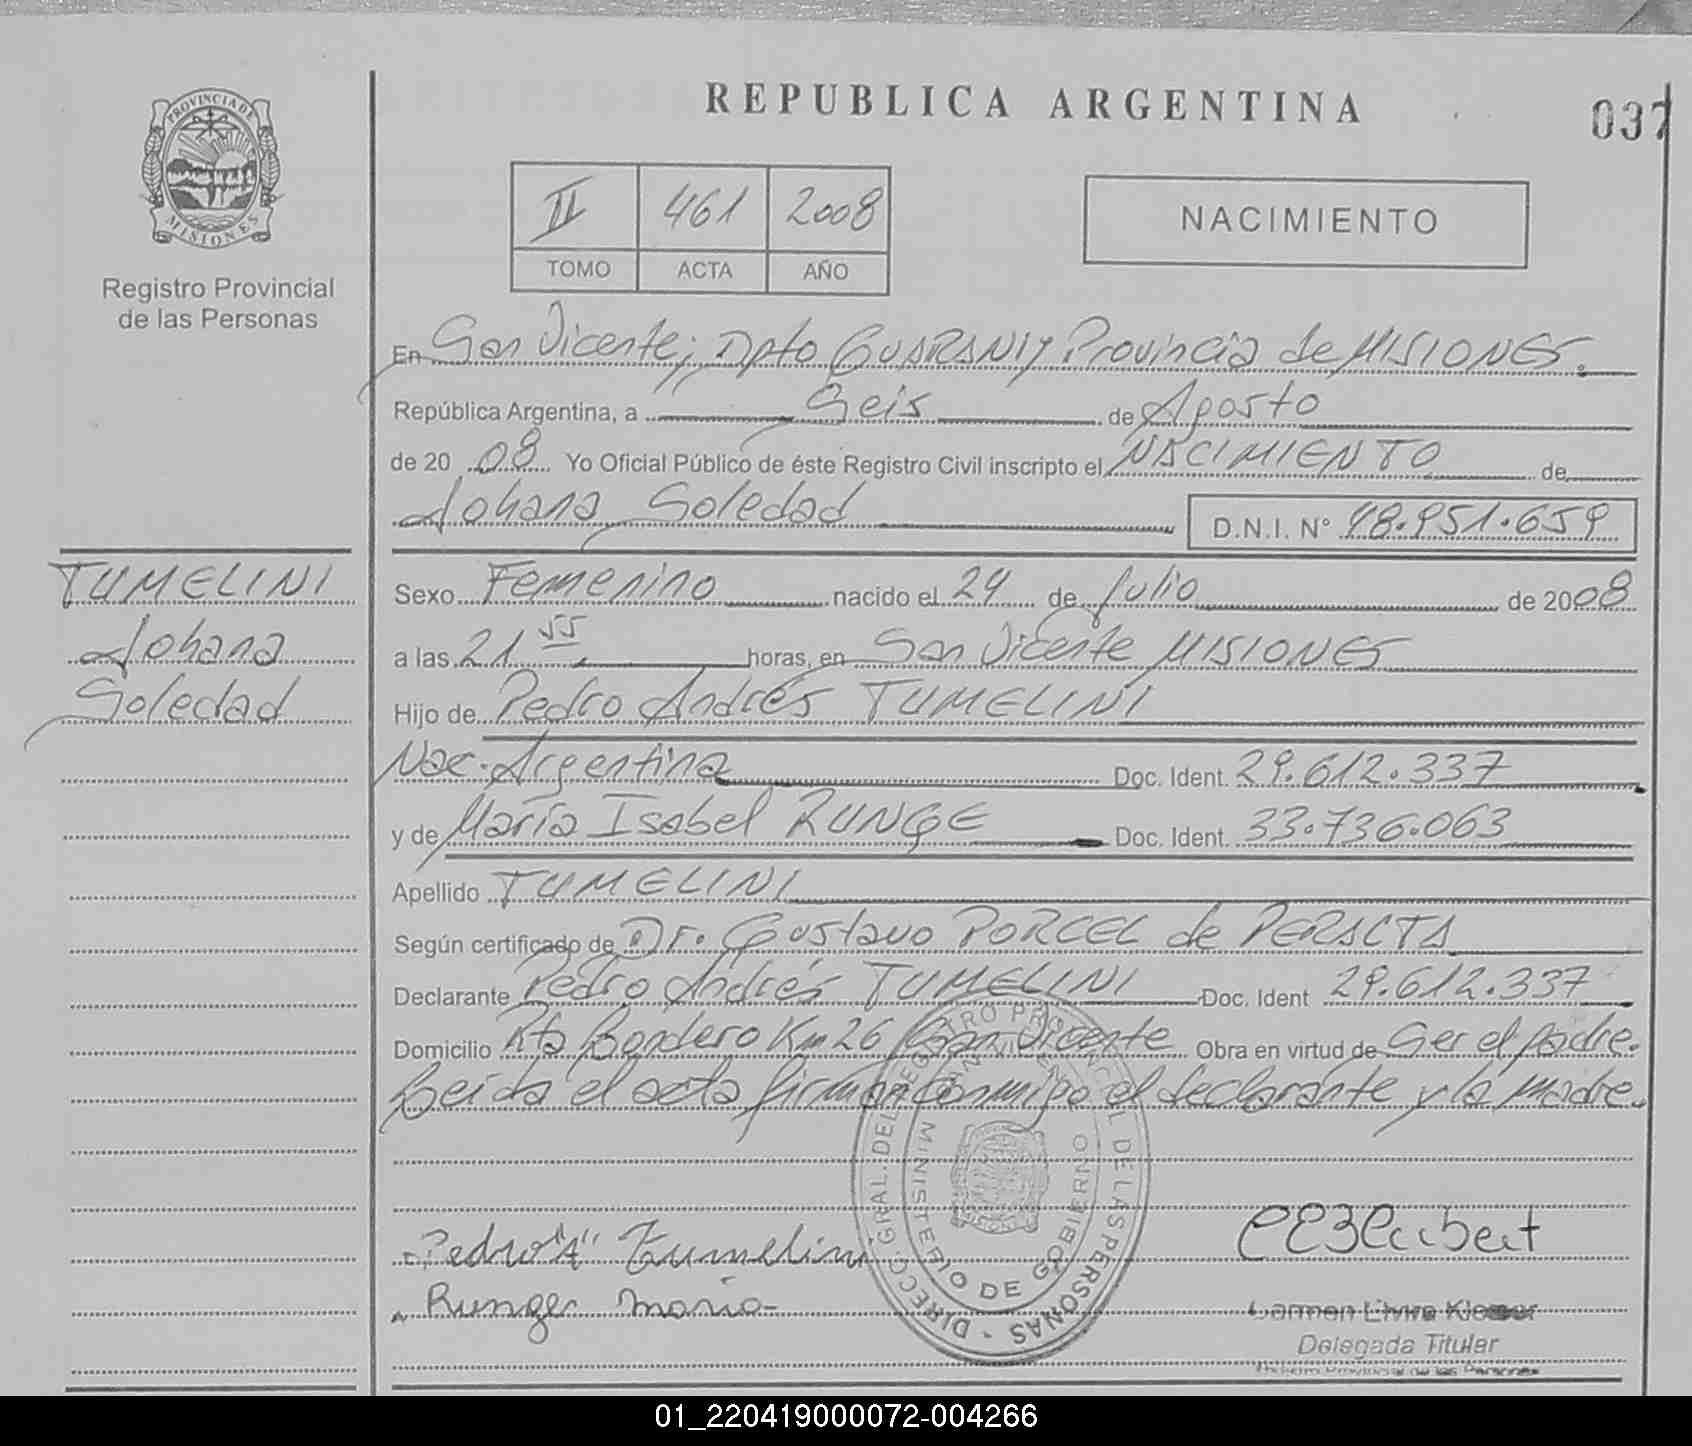 REPUBLICA ARGENTINA
037
PROVINCIA DE
MISIONES
Registro Provincial
de las Personas
II 461 2008
TOMO ACTA AÑO
NACIMIENTO
En San Vicente; Dpto GUARANI y Provincia de MISIONES.
República Argentina, a Seis de Agosto
de 20 08 Yo Oficial Público de éste Registro Civil inscripto el NACIMIENTO de
Johana Soledad D.N.I. N° 48.951.659
TUMELINI
Johana
Soledad
Sexo Femenino nacido el 24 de Julio de 2008
a las 21 55 horas, en San Vicente MISIONES
Hijo de Pedro Andrés TUMELINI
Nac. Argentina Doc. Ident. 29.612.337
y de María Isabel RUNGE Doc. Ident. 33.736.063
Apellido TUMELINI
Según certificado de Dr. Gustavo PORCEL de PERALTA
Declarante Pedro Andrés TUMELINI Doc. Ident 29.612.337
Domicilio Rta Bordero Km 26 San Vicente Obra en virtud de Ser el padre.
Leída el acta firman conmigo el declarante y la madre.
DIRECC. GRAL. DEL REGISTRO PROVINCIAL DE LAS PERSONAS
SAN VICENTE
MINISTERIO DE GOBIERNO
Pedro "A" Tumelini
Runge maria
Carmen Elvira
Delegada Titular
Registro Provincial de las Personas
01_220419000072-004266